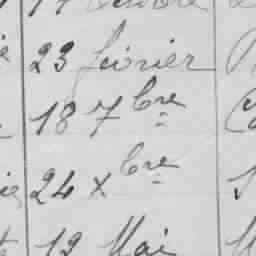 23 février
18 7bre
24 xbre
12 Mai